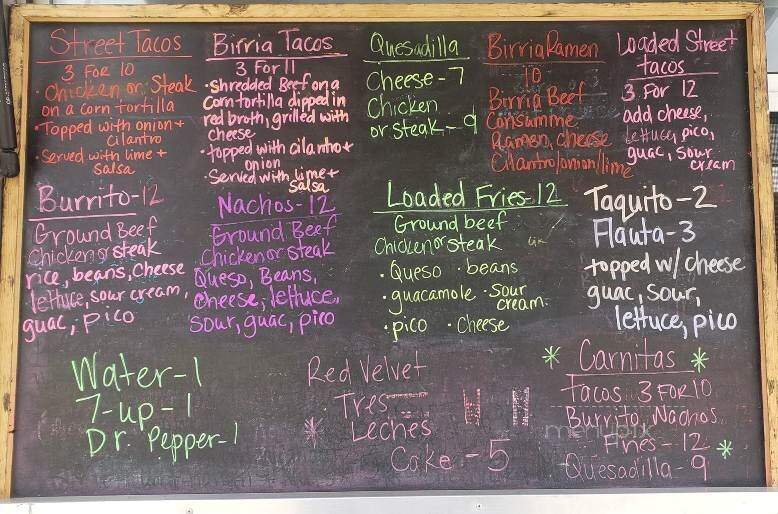 Street Tacos
3 FOR 10
• Chicken or Steak
on a corn tortilla
• Topped with onion +
Cilantro
• Served with lime +
Salsa
Birria Tacos
3 For 11
• Shredded Beef on a
Corn tortilla dipped in
red broth, grilled with
cheese
• topped with cilantro +
onion
• Served with Lime +
Salsa
Quesadilla
Cheese - 7
Chicken
or steak - 9
Birria Ramen
10
Birria Beef
Consumme,
Ramen, cheese
Cilantro/onion/lime
Loaded Street
tacos
3 For 12
add cheese,
lettuce, pico,
guac, sour
cream
Burrito - 12
Ground Beef
Chicken or steak
rice, beans, Cheese
lettuce, sour cream,
guac, pico
Nachos - 12
Ground Beef
Chicken or steak
Queso, Beans,
Cheese, lettuce,
Sour, guac, pico
Loaded Fries - 12
Ground beef
Chicken or steak
• Queso • beans
• guacamole • Sour
cream
• pico • Cheese
Taquito - 2
Flauta - 3
topped w/ cheese
guac, sour,
lettuce, pico
Water - 1
7-up - 1
Dr. Pepper - 1
Red Velvet
Tres
* Leches
Cake - 5
* Carnitas *
Tacos 3 FOR 10
Burrito, Nachos
Fries - 12 *
Quesadilla - 9